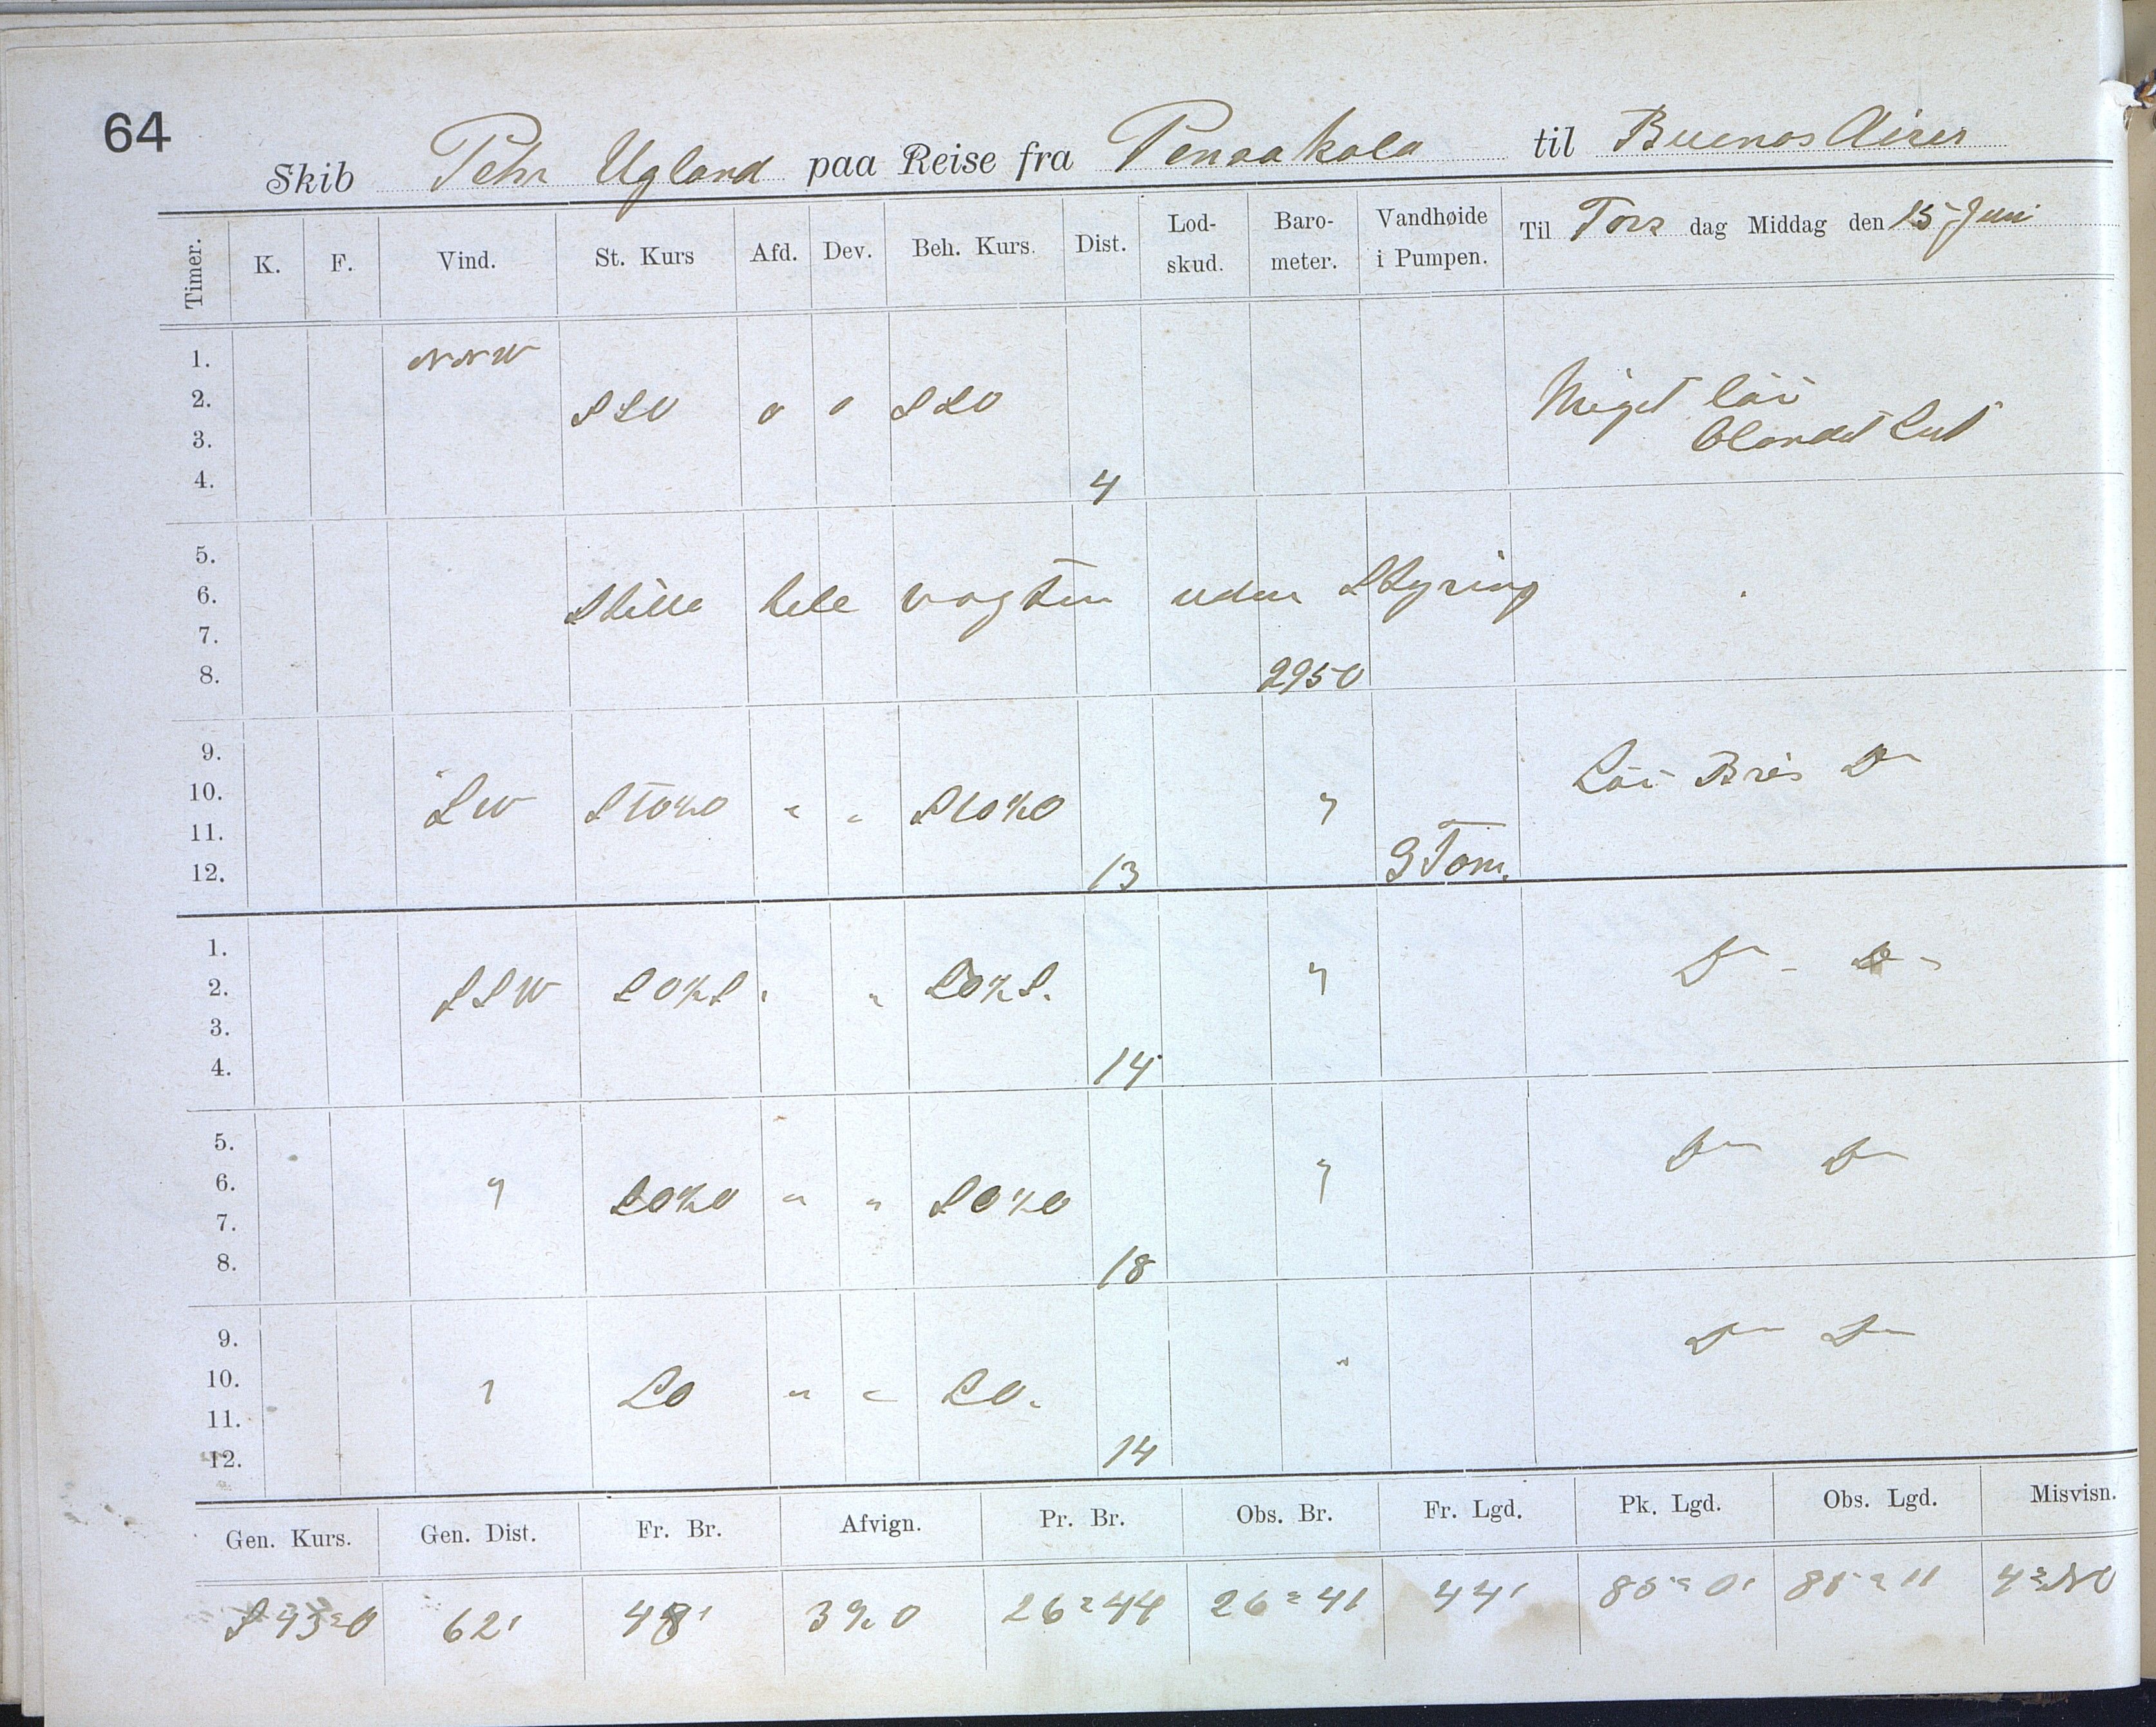 64
Skib Petr Ugland paa Reise fra Pensakola til Buenos Aires
Timer. K. F. Vind. St. Kurs Afd. Dev. Beh. Kurs. Dist. Lod-skud. Baro-meter. Vandhøide i Pumpen. Til Tors dag Middag den 15 Juni
1. NNW
2. SSO 0 0 SSO Meget löi
3. Blandet Luft
4. 4
5.
6. Stille hele vagten uden Styring
7.
8. 2950
9. Löi Bris Do
10. SW StO½O " " StO½O "
11.
12. 13 9 Tom.
1. Do - Do -
2. SSW SO½S " " SO½S. "
3.
4. 14
5. Do Do
6. " SO½O " " SO½O "
7.
8. 18
9. Do Do
10. " SO " " SO. "
11.
12. 14
Gen. Kurs. Gen. Dist. Fr. Br. Afvign. Pr. Br. Obs. Br. Fr. Lgd. Pk. Lgd. Obs. Lgd. Misvisn.
S 43° O 62' 48' 39. O 26° 44 26° 41 44' 85° 0' 85° 11 4° NO